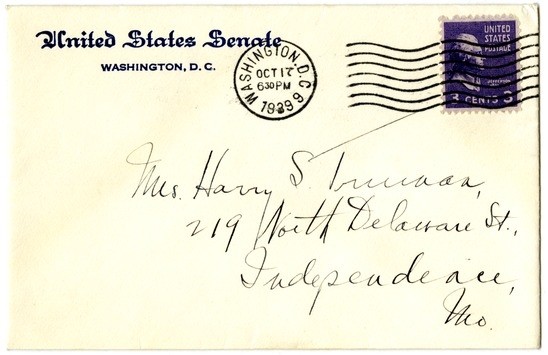 United States Senate
WASHINGTON, D. C.
WASHINGTON, D.C.
OCT 17
6 30 PM
1939
6
UNITED
STATES
POSTAGE
JEFFERSON
3 CENTS 3
Mrs. Harry S. Truman,
219 North Delaware St.,
Independence,
Mo.